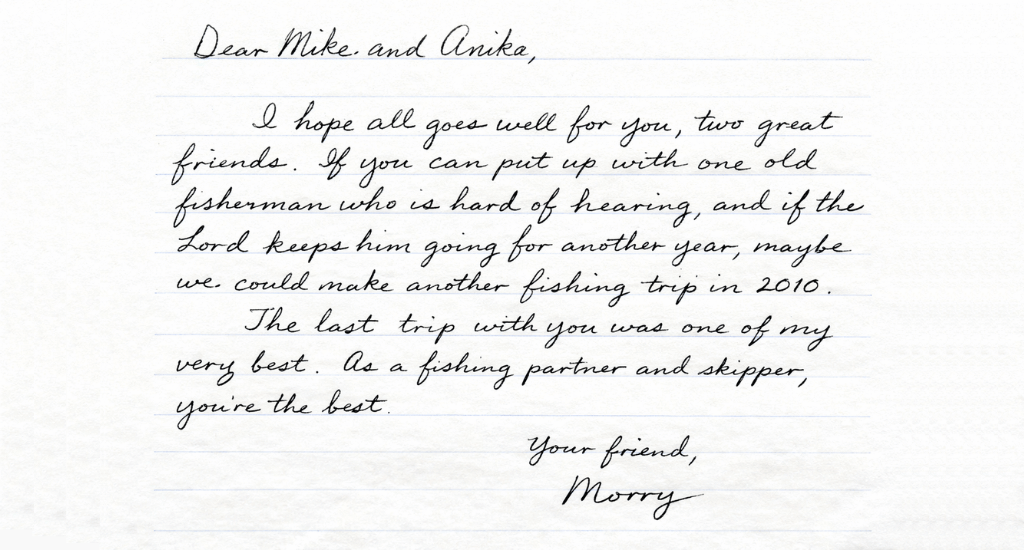 Dear Mike and Anika,
I hope all goes well for you, two great
friends. If you can put up with one old
fisherman who is hard of hearing, and if the
Lord keeps him going for another year, maybe
we could make another fishing trip in 2010.
The last trip with you was one of my
very best. As a fishing partner and skipper,
you're the best.
Your friend,
Morry